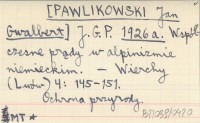 [PAWLIKOWSKI Jan
Gwalbert] J. G. P. 1926 a. Współ-
czesne prądy w alpinizmie
niemieckim. — Wierchy
(Lwów) 4: 145-151.
Ochrona przyrody.
MT *